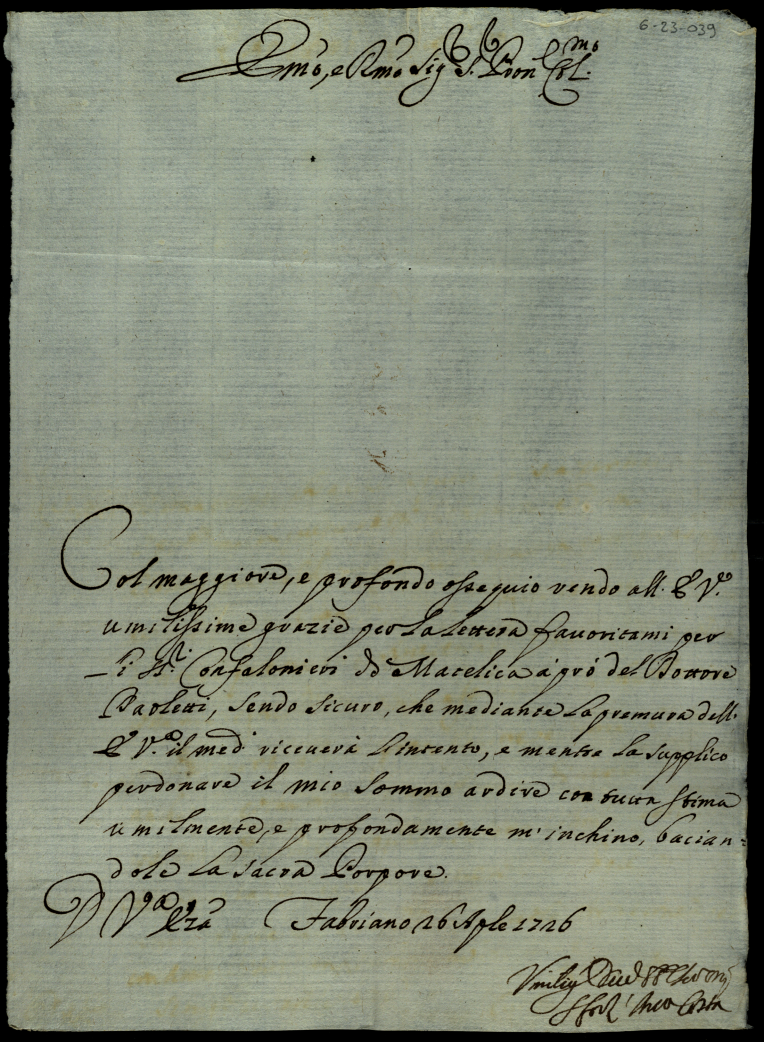 6-23-039
Emo, e Rmo Sig. S. Pron Col.mo
Col maggiore, e profondo ossequio rendo all. E V.
umilissime grazie per la lettera favoritami per
li SS.ri Confalonieri di Matelica à prò del Dottore
Paoletti, sendo sicuro, che mediante la premura dell.
E V.a il med. riceverà l'intento, e mentre la supplico
perdonare il mio sommo ardire con tutta stima
umilmente, e profondamente m' inchino, bacian=
dole la sacra Porpore.
D V.a Eza Fabriano 26 Aple 1726
Costa